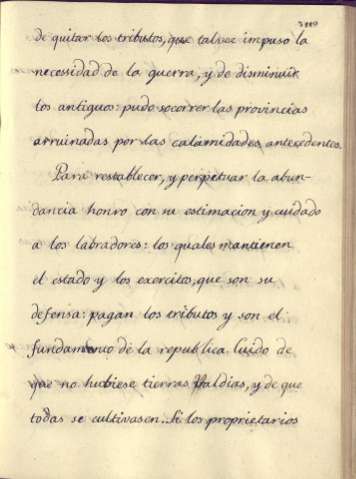 de quitar los tributos, que talvez impuso la
necessidad de la guerra, y de disminuir
los antiguos: pudo socorrer las provincias
arruinadas por las calamidades antecedentes.
Para restablecer, y perpetuar la abun-
dancia honro con su estimacion y cuidado
a los labradores: los quales mantienen
el estado y los exercitos, que son su
defensa: pagan los tributos y son el
fundamento de la republica. Cuido de
que no hubiese tierras valdias, y de que
todas se cultivasen. Si los proprietarios